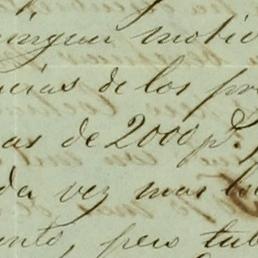 ningun motiv
cias de los pr
as de 2000 p.
da vez mas
ento, pero